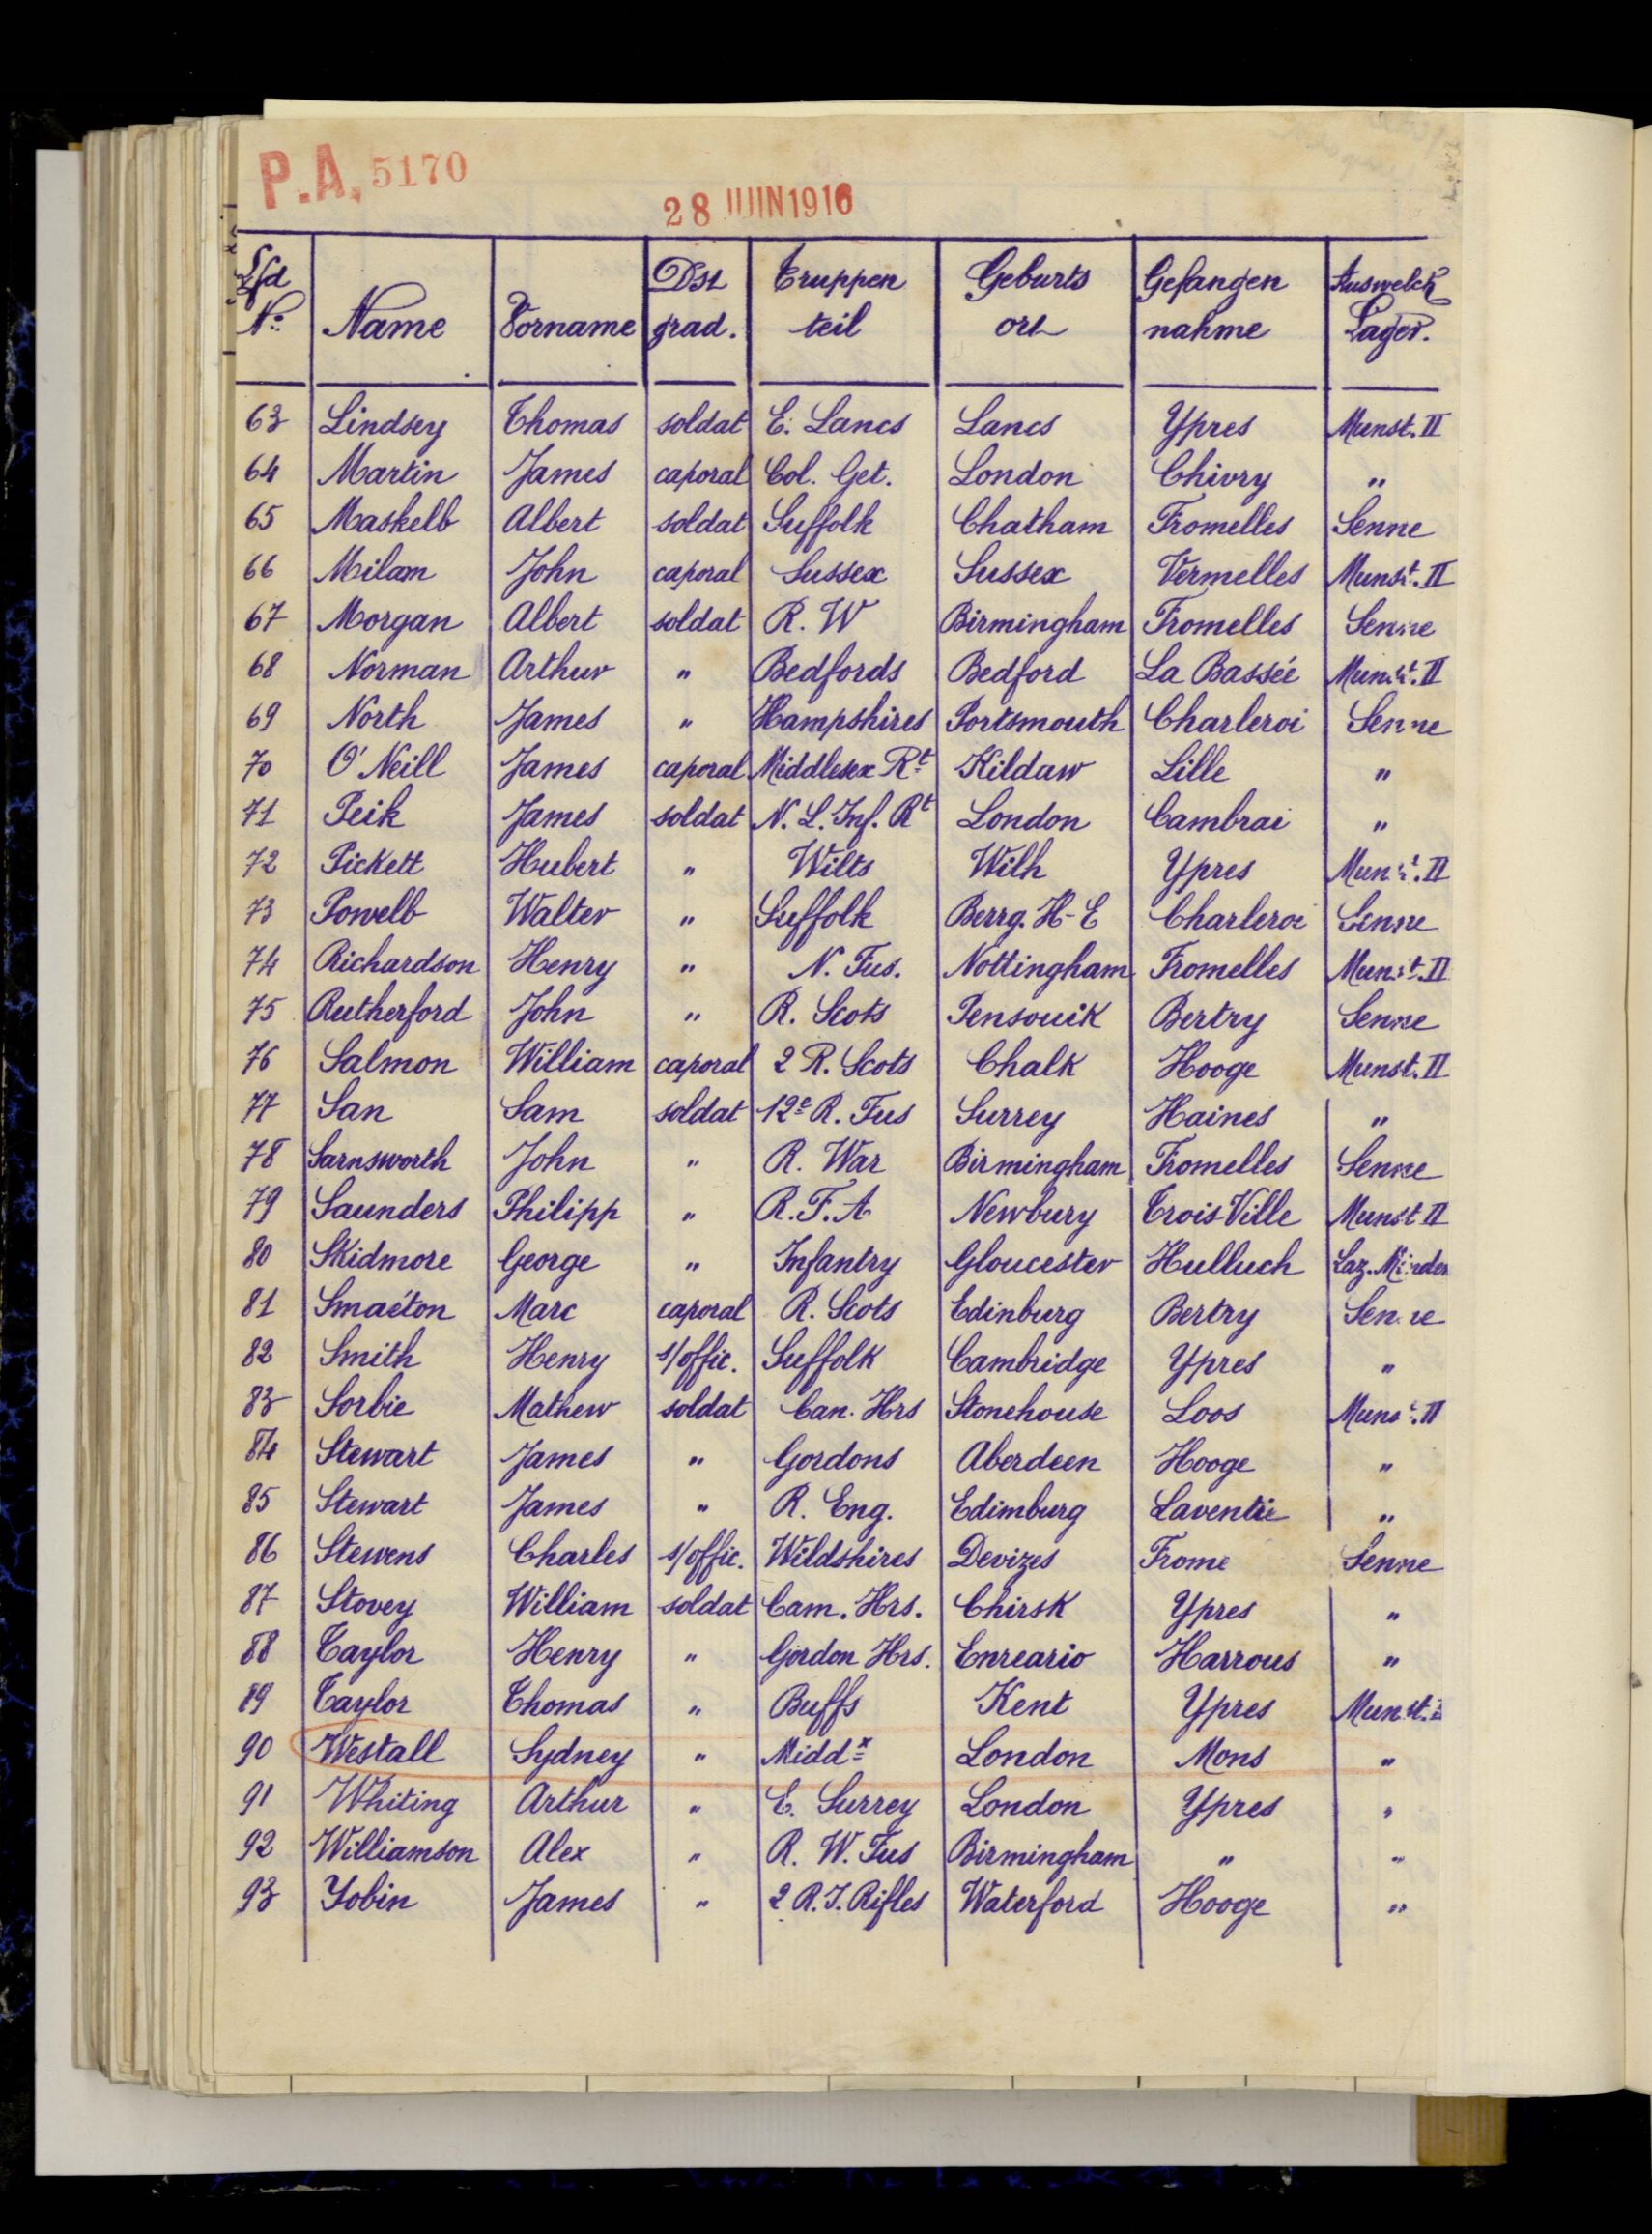 P.A. 5170
28 JUIN 1916
Lfd Nº Name Vorname Dst grad. Truppen teil Geburts ort Gefangen nahme Auswelch Lager.
63 Lindsey Thomas soldat E. Lancs Lancs Ypres Munst. II
64 Martin James caporal Col. Get. London Chivry "
65 Maskelb Albert soldat Suffolk Chatham Fromelles Senne
66 Milam John caporal Sussex Sussex Vermelles Munst. II
67 Morgan Albert soldat R. W Birmingham Fromelles Senne
68 Norman Arthur " Bedfords Bedford La Bassée Munst. II
69 North James " Hampshires Portsmouth Charleroi Senne
70 O'Neill James caporal Middlesex Rt Kildaw Lille "
71 Peik James soldat N. L. Inf. Rt London Cambrai "
72 Pickett Hubert " Wilts Wilh Ypres Munst. II
73 Powelb Walter " Suffolk Berrg. H-E Charleroi Senne
74 Richardson Henry " N. Fus. Nottingham Fromelles Munst. II
75 Rutherford John " R. Scots Pensouik Bertry Senne
76 Salmon William caporal 2 R. Scots Chalk Hooge Munst. II
77 San Sam soldat 12e R. Fus Surrey Haines "
78 Sarnsworth John " R. War Birmingham Fromelles Senne
79 Saunders Philipp " R.F.A Newbury Trois Ville Munst II
80 Skidmore George " Infantry Gloucester Hulluch Laz. Minden
81 Smaéton Marc caporal R. Scots Edinburg Bertry Senne
82 Smith Henry s/offic. Suffolk Cambridge Ypres "
83 Sorbie Mathew soldat Can. Hrs Stonehouse Loos Munst. II
84 Stewart James " Gordons Aberdeen Hooge "
85 Stewart James " R. Eng. Edimburg Laventie "
86 Stewens Charles s/offic. Wildshires Devizes Frome Senne
87 Stovey William soldat Cam. Hrs. Chirsk Ypres "
88 Taylor Henry " Gordon Hrs. Enreario Harrous "
89 Taylor Thomas " Buffs Kent Ypres Munst. II
90 Westall Sydney " Middx London Mons "
91 Whiting Arthur " E. Surrey London Ypres "
92 Williamson Alex " R. W. Fus Birmingham " "
93 Yobin James " 2 R. I. Rifles Waterford Hooge "